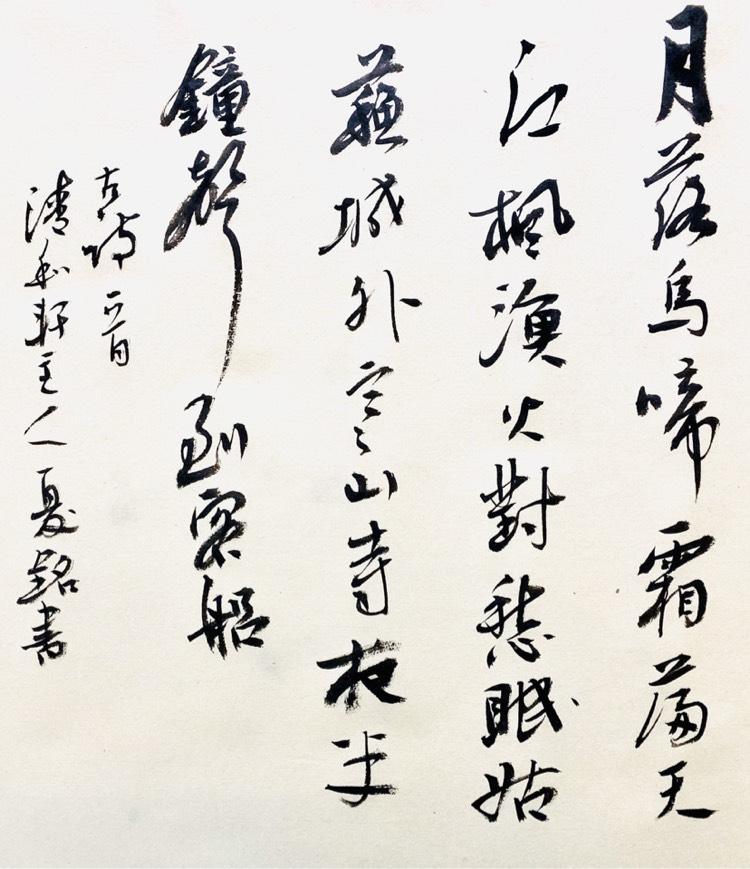 月落烏啼霜滿天
江楓漁火對愁眠姑
蘇城外寒山寺夜半
鐘聲到客船
古詩一首
清和軒主人夏銘書